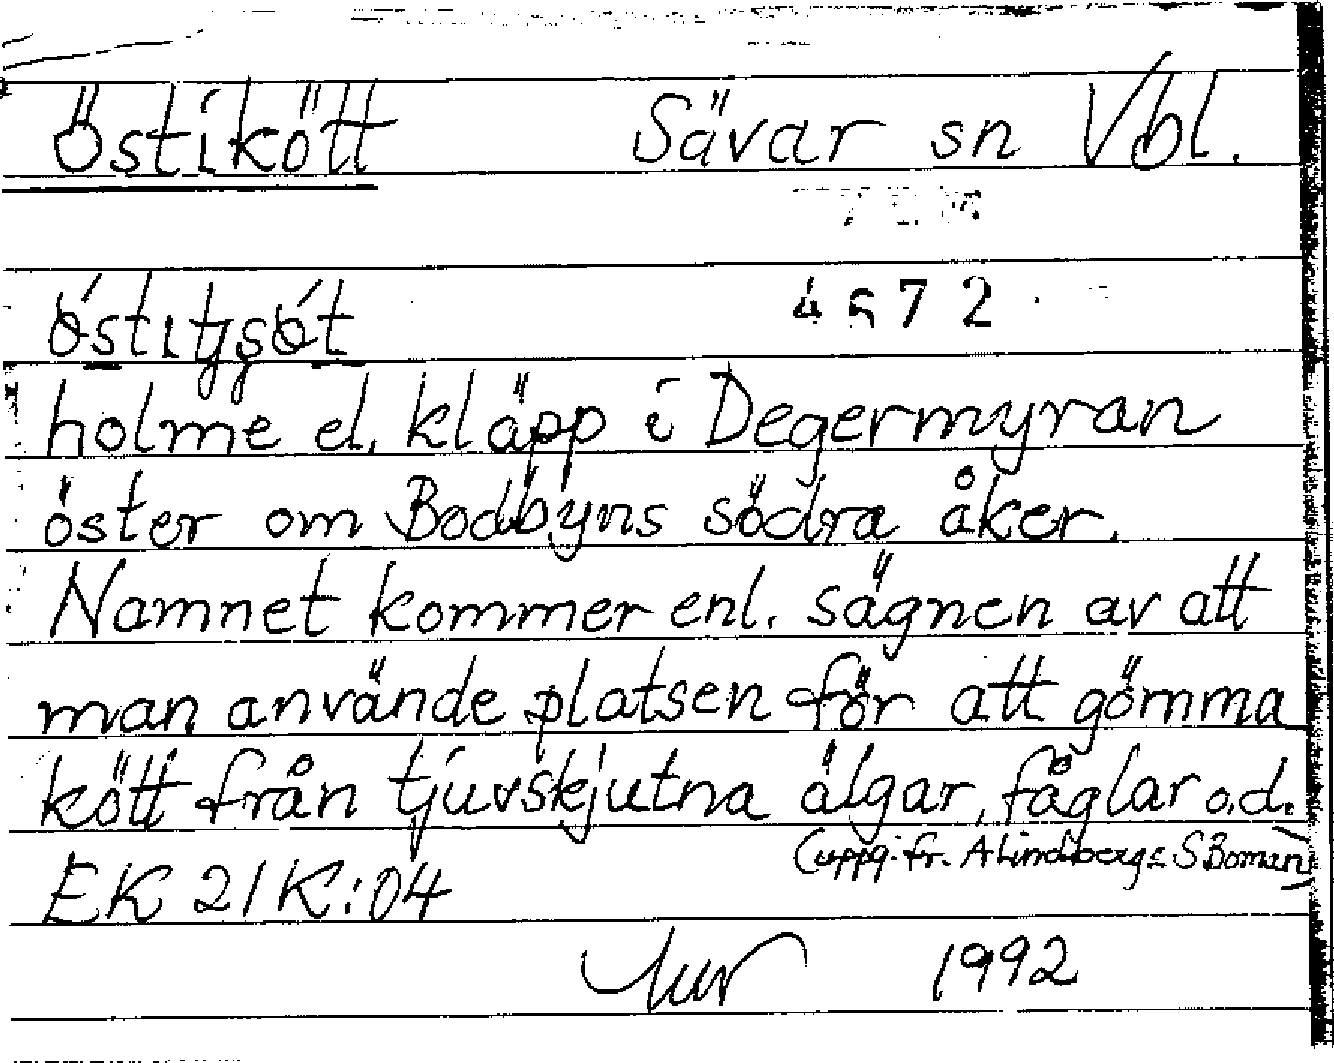 Östikött Sävar sn Vbl.
4572
östitjsöt
holme el. kläpp i Degermyran
öster om Bodbyns södra åker.
Namnet kommer enl. sägnen av att
man använde platsen för att gömma
kött från tjuvskjutna älgar, fåglar o.d.
(uppg. fr. A Lindberg & S Boman)
EK 21K:04
1992